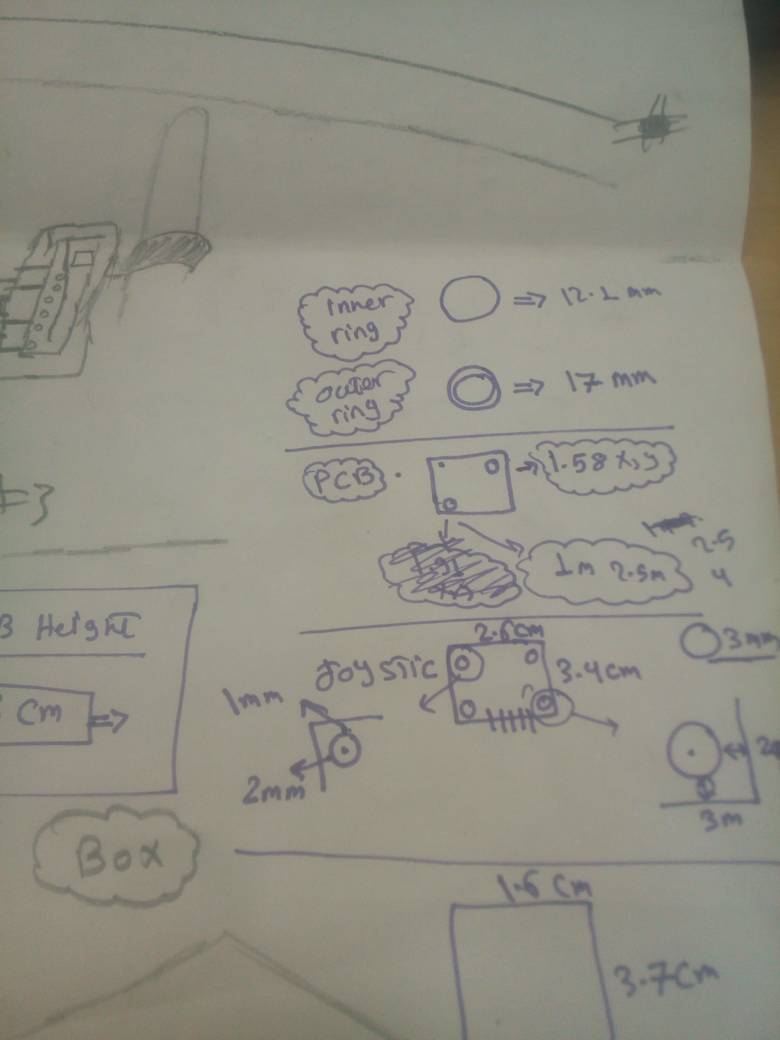 inner
ring
⇒ 12.1 mm
outer
ring
⇒ 17 mm
PCB
1.58 x,y
1m 2.5m
2.5
4
Height
Cm ⇒
Box
Joystic
2.6cm
3.4cm
1mm
2mm
3mm
3m
1.6 Cm
3.7Cm